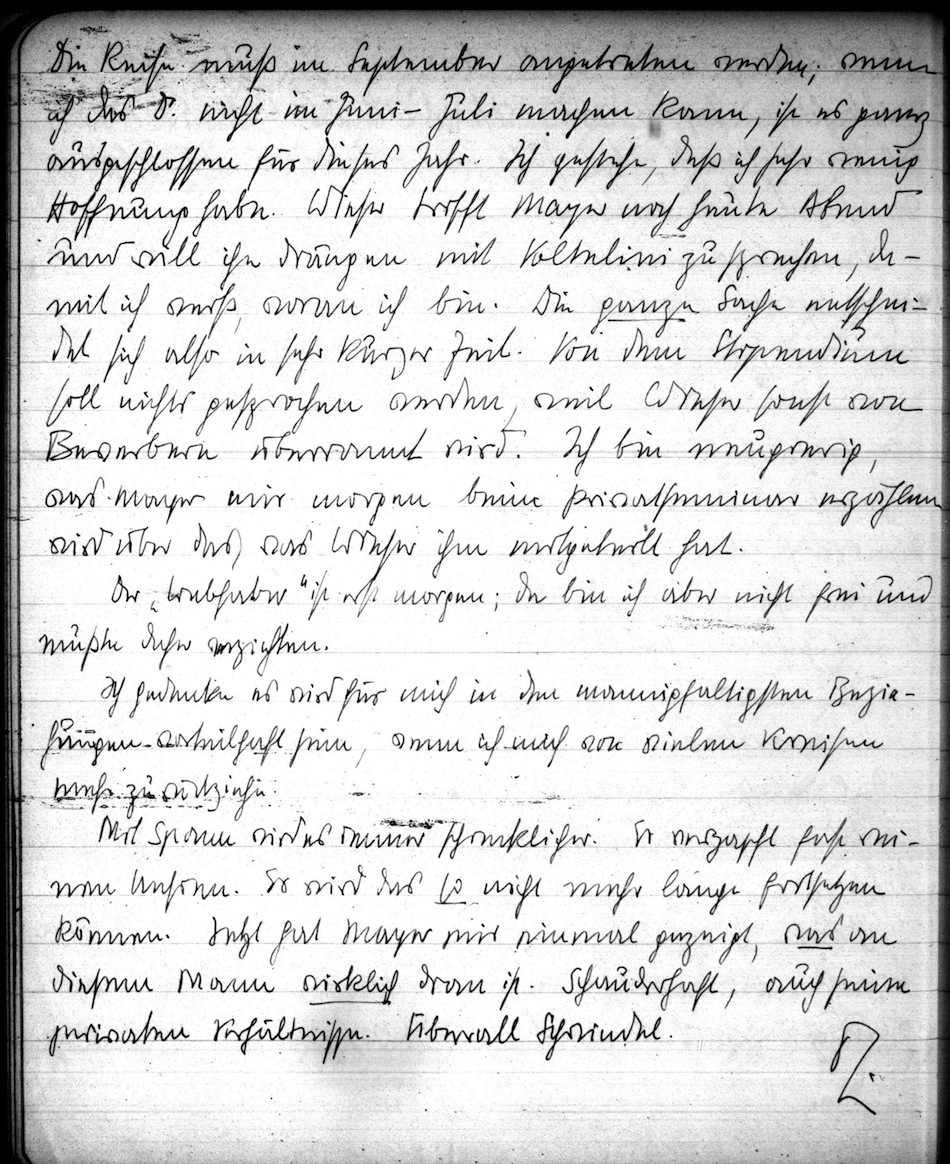 Die Reise muß im September angetreten werden; wenn
ich das D. nicht im Juni- Juli machen kann, ist es ganz
ausgeschlossen für dieses Jahr. Ich gestehe, daß ich sehr wenig
Hoffnung habe. Wieser trifft Mayer noch heute Abend
und will ihn drängen mit Voltelini zu sprechen, da-
mit ich weiß, woran ich bin. Die ganze Sache entschei-
det sich also in sehr kurzer Zeit. Von dem Stipendium
soll nichts gesprochen werden, weil Wieser sonst von
Bewerbern überrannt wird. Ich bin neugierig,
was Mayer mir morgen beim Privatseminar erzählen
wird über das, was Wieser ihm mitgeteilt hat.
Der „Liebhaber" ist erst morgen; da bin ich aber nicht frei und
müßte daher verzichten.
Ich gedenke es wird für mich in den mannigfaltigsten Bezie-
hungen vorteilhaft sein, wenn ich mich von vielen Kreisen
mehr zurückziehe.
Mit Spann wird es immer schrecklicher. Er verzapft fast rei-
nen Unsinn. Er wird das so nicht mehr lange fortsetzen
können. Jetzt hat Mayer mir einmal gezeigt, was an
diesem Mann wirklich dran ist. Schauderhaft, auch seine
privaten Verhältnisse. Überall Schwindel.